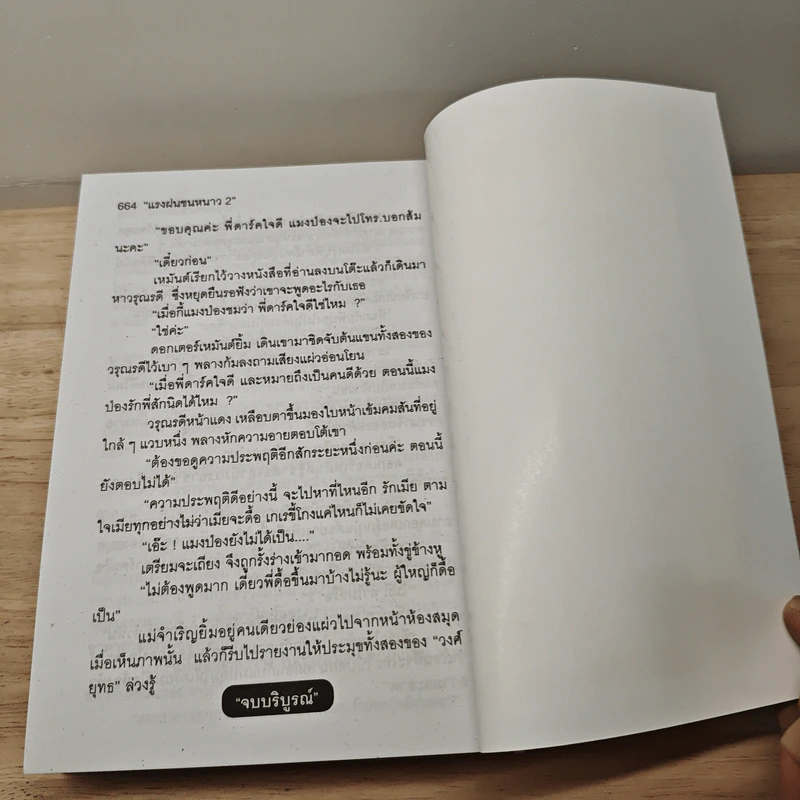 664 "แรงฝนชนหนาว 2"
"ขอบคุณค่ะ พี่ดาร์คใจดี แมงป่องจะไปโทร.บอกส้ม
นะคะ"
"เดี๋ยวก่อน"
เหมันต์เรียกไว้วางหนังสือที่อ่านลงบนโต๊ะแล้วก็เดินมา
หาวรุณรดี ซึ่งหยุดยืนรอฟังว่าเขาจะพูดอะไรกับเธอ
"เมื่อกี้แมงป่องชมว่า พี่ดาร์คใจดีใช่ไหม ?"
"ใช่ค่ะ"
ดอกเตอร์เหมันต์ยิ้ม เดินเขามาชิดจับต้นแขนทั้งสองของ
วรุณรดีไว้เบา ๆ พลางก้มลงถามเสียงแผ่วอ่อนโยน
"เมื่อพี่ดาร์คใจดี และหมายถึงเป็นคนดีด้วย ตอนนี้แมง
ป่องรักพี่สักนิดได้ไหม ?"
วรุณรดีหน้าแดง เหลือบตาขึ้นมองใบหน้าเข้มคมสันที่อยู่
ใกล้ ๆ แวบหนึ่ง พลางหักความอายตอบโต้เขา
"ต้องขอดูความประพฤติอีกสักระยะหนึ่งก่อนค่ะ ตอนนี้
ยังตอบไม่ได้"
"ความประพฤติดีอย่างนี้ จะไปหาที่ไหนอีก รักเมีย ตาม
ใจเมียทุกอย่างไม่ว่าเมียจะดื้อ เกเรขี้โกงแค่ไหนก็ไม่เคยขัดใจ"
"เอ๊ะ ! แมงป่องยังไม่ได้เป็น...."
เตรียมจะเถียง จึงถูกรั้งร่างเข้ามากอด พร้อมทั้งขู่ข้างหู
"ไม่ต้องพูดมาก เดี๋ยวพี่ดื้อขึ้นมาบ้างไม่รู้นะ ผู้ใหญ่ก็ดื้อ
เป็น"
แม่จำเริญยิ้มอยู่คนเดียวย่องแผ่วไปจากหน้าห้องสมุด
เมื่อเห็นภาพนั้น แล้วก็รีบไปรายงานให้ประมุขทั้งสองของ "วงศ์
ยุทธ" ล่วงรู้
"จบบริบูรณ์"